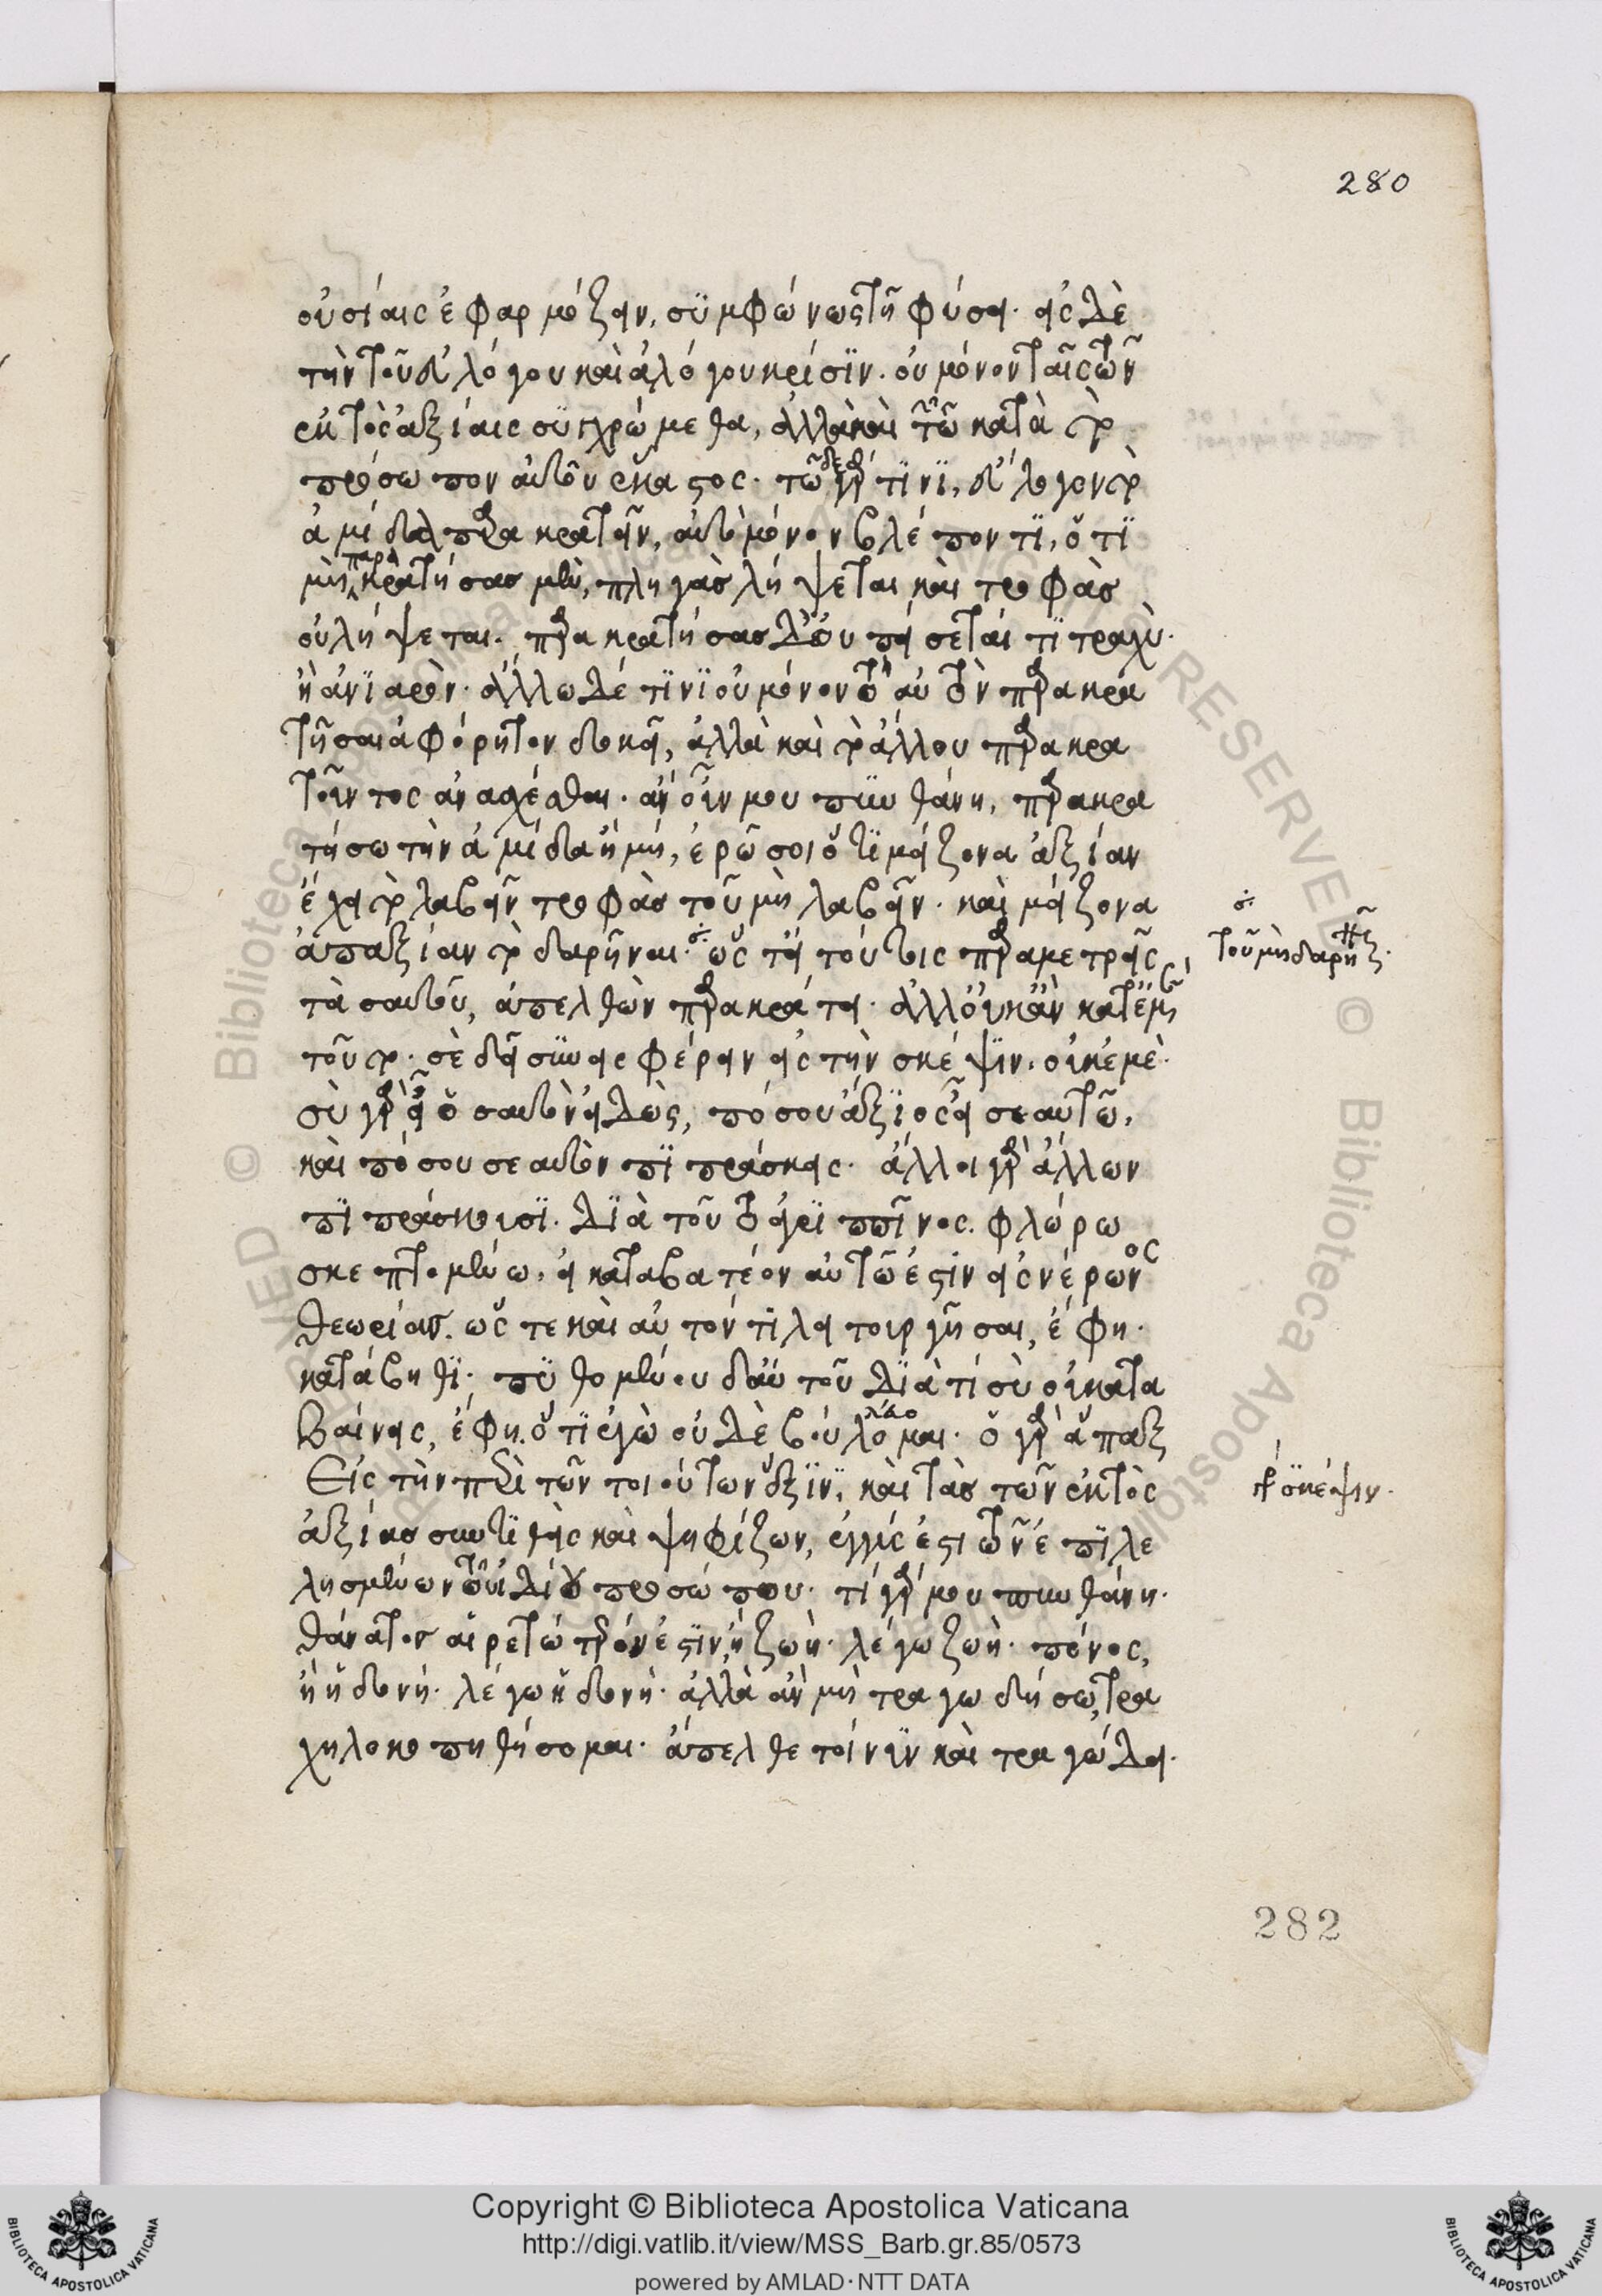 280
οὐσίαις ἐφαρμόζειν, συμφώνως τῆ φύσει. εἰς δὲ
τὴν τοῦ εὐλόγου καὶ ἀλόγου κρίσϊν. οὐ μόνον ταῖς τῶν
ἐκτὸς ἀξίαις συγχρώμεθα, ἀλλὰ καὶ τῶν κατὰ τὸ
πρόσωπον αὐτῶν ἕκαστος. τῶ δὲ γάρ τϊνϊ, εὔλογον τὸ
ἀμίδαν παρακρατεῖν, αὐτὸ μόνον βλέποντϊ, ὅτϊ
μὴ παρακρατήσας μὲν, πληγὰς λήψεται καὶ τροφὰς
οὐ λήψεται. παρακρατήσας δὲ οὐ πείσεταί τϊ τραχὺ.
ἢ ἀνϊαρὸν. ἄλλω δέ τϊνϊ οὐ μόνον τὸ αὐτὸν παρακρα
τῆσαι ἀφόρητον δοκεῖ, ἀλλὰ καὶ τὸ ἄλλου παρακρα
τοῦντος ἀνασχέσθαι. ἂν οὖν μου πυνθάνη, παρακρα
τήσω τὴν ἀμίδα ἢ μή, ἐρῶ σοι ὅτϊ μείζονα ἀξίαν
ἔχει τὸ λαβεῖν τροφὰς τοῦ μὴ λαβεῖν. καὶ μείζονα
ἀπαξίαν τὸ δαρῆναι. ὥστ' εἰ τούτοις παραμετρεῖς
τοῦ μὴ δαρῆναι.
τὰ σαυτοῦ, ἀπελθὼν παρακράτει. ἀλλ' οὐκ ἂν κατ' ἐμέ
τοῦτο. σὲ δεῖ συνεισφέρειν εἰς τὴν σκέψϊν, οὐκ ἐμὲ.
σὺ γὰρ εἶ ὁ σαυτὸν εἰδὼς, πόσου ἄξϊος εἶ σεαυτῶ,
καὶ πόσου σεαυτὸν πϊπράσκεις. ἄλλοι γὰρ ἄλλων
πϊπράσκουσϊ. δϊὰ τοῦτο ἀγρϊππῖνος. φλώρω
σκεπτομένω, εἰ καταβατέον αὐτῶ ἐστὶν εἰς νέρωνος
θεωρίας. ὥστε καὶ αὐτόν τι λειτουργῆσαι, ἔφη.
κατάβηθϊ. πυθομένου δ' αὐτοῦ δϊὰ τί σὺ οὐ κατα
βαίνεις, ἔφη. ὅτϊ ἐγὼ οὐδὲ βουλεύομαι. ὁ γὰρ ἅπαξ
Εἰς τὴν περὶ τῶν τοιούτων ἕξϊν, καὶ τὰς τῶν ἐκτὸς
σκέψιν.
ἀξίας συντϊθεὶς καὶ ψηφίζων, ἐγγύς ἐστι τῶν ἐπϊλε
λησμένων τοῦ ἰδίου προσώπου. τί γάρ μου πυνθάνη.
θάνατος αἱρετώτερόν ἐστϊν, ἢ ζωὴ. λέγω ζωὴ. πόνος,
ἢ ἡδονή. λέγω ἡδονὴ. ἀλλὰ ἂν μὴ τραγωδήσω, τρα
χηλοκοπηθήσομαι. ἄπελθε τοίνυν καὶ τραγώδει.
282
Copyright © Biblioteca Apostolica Vaticana
http://digi.vatlib.it/view/MSS_Barb.gr.85/0573
powered by AMLAD·NTT DATA